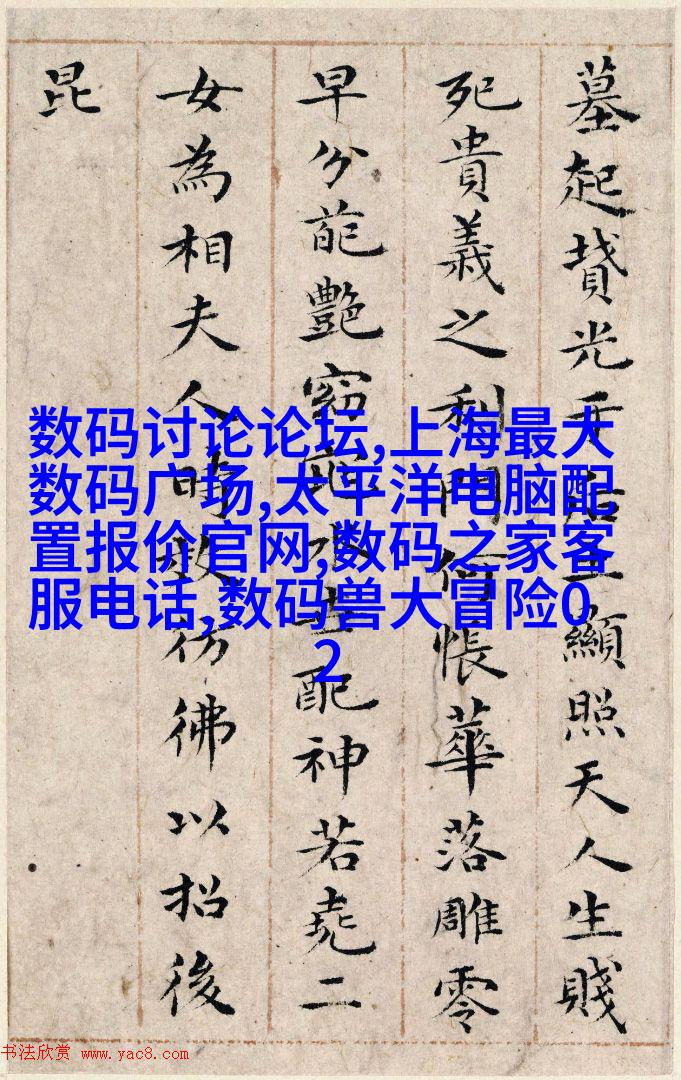 墓起墳光于后土顯照天人生賤
死貴義之利門何悵華落雕零
早分葩艷窈窕永世配神若堯二
女為相夫人時效仿彿以招後
昆
数码讨论论坛,上海最大
数码广场,太平洋电脑配
置报价官网,数码之家客
服电话,数码兽大冒险0
2
书法欣赏 www.yac8.com